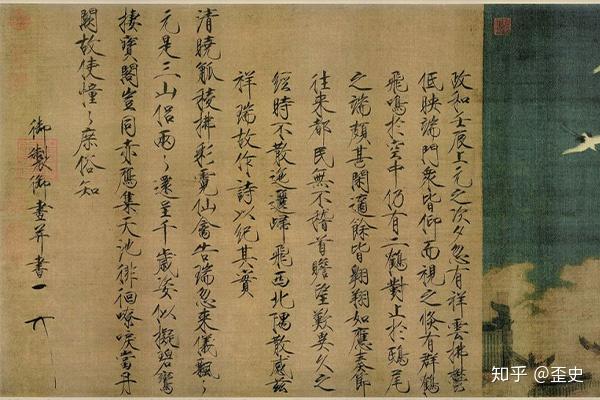 政和壬辰上元之次夕忽有祥雲拂鬱
低映端門衆皆仰而視之倏有群鶴
飛鳴於空中仍有二鶴對止於鴟尾
之端頗甚閑適餘皆翱翔如應奏節
往來都民無不稽首瞻望歎異久之
經時不散迤邐歸飛西北隅散感茲
祥瑞故作詩以紀其實
清曉觚稜拂彩霓仙禽告瑞忽來儀飄〻
元是三山侶兩〻還呈千歲姿似擬碧鸞
棲寶閣豈同赤鴈集天池徘徊嘹唳當丹
闕故使憧〻庶俗知
御製御畫并書
知乎 @歪史